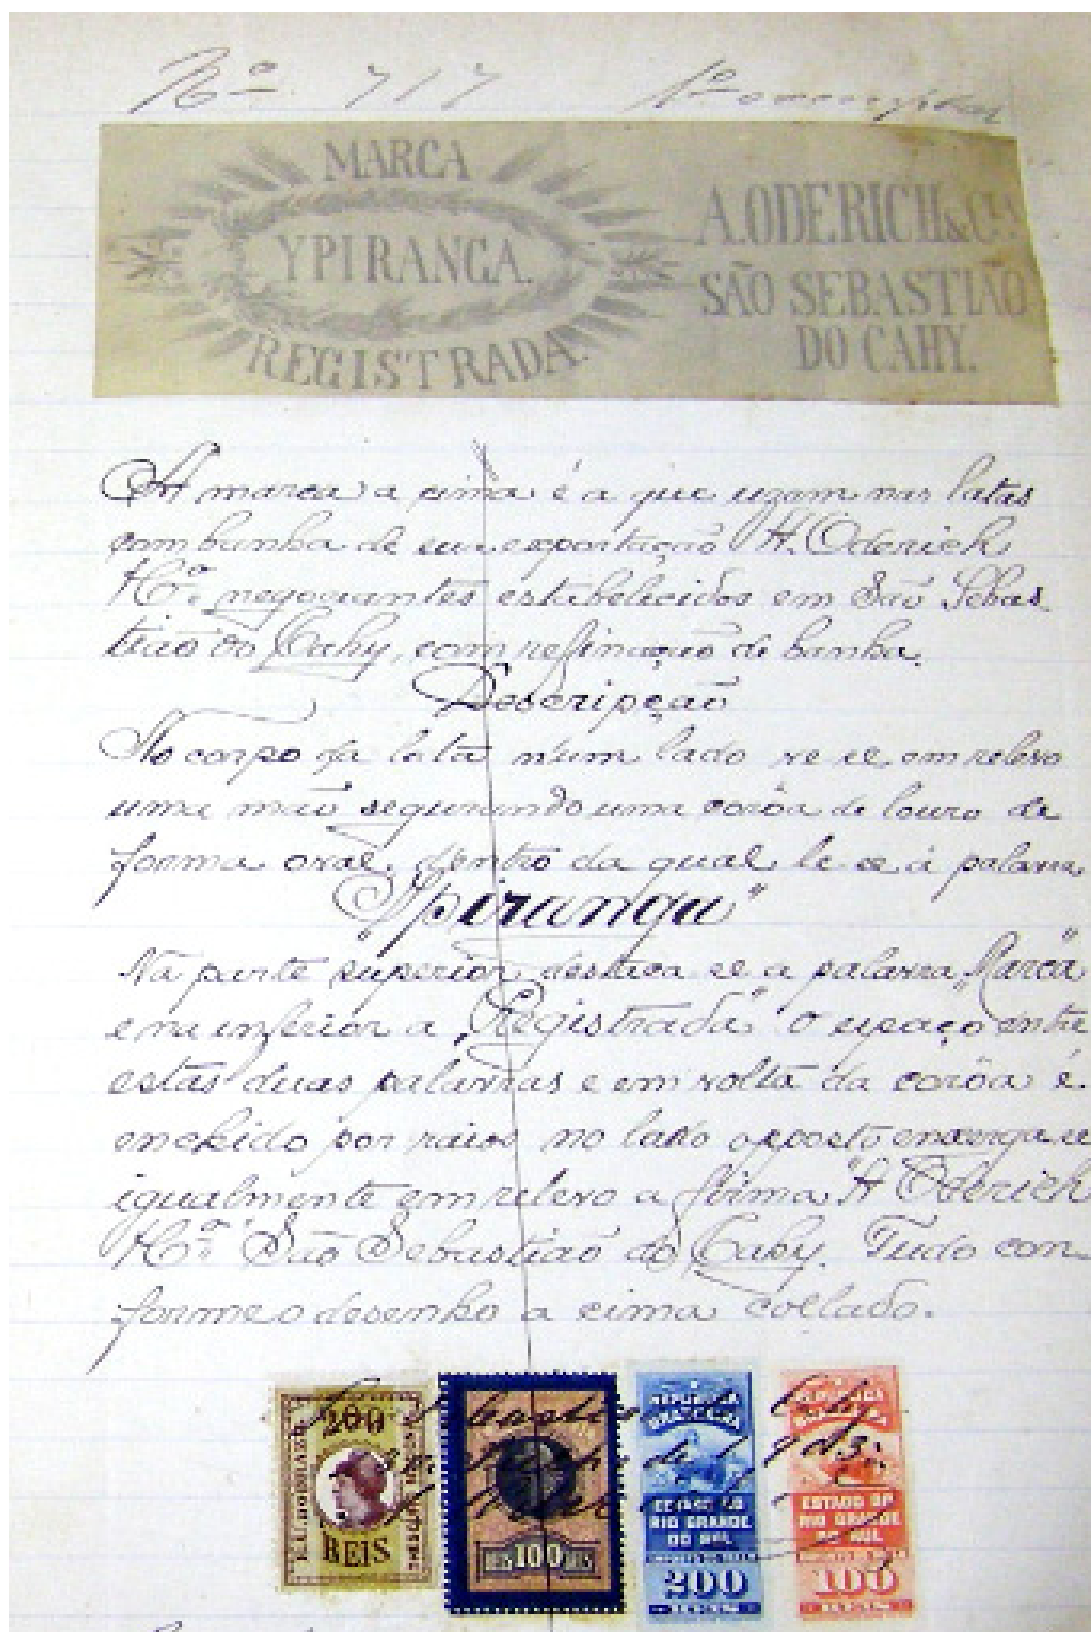 Nº 717
MARCA
YPIRANGA.
REGISTRADA.
A. ODERICH & Cia
SÃO SEBASTIÃO
DO CAHY.
A marca a cima é a que uzam nas latas
com banha de sua exportação A. Oderich
& Cª negociantes estabelecidos em São Sebas
tião do Cahy, com refinação de banha.
Descripção
No corpo da lata n'um lado ve se em relevo
uma mão segurando uma corôa de louro de
forma oval, dentro da qual le se a palavra
"Ypiranga"
Na parte superior destaca se a palavra "Marca"
e na inferior a "Registrada" O espaço entre
estas duas palavras e em volta da corôa é
enchido por raios no lado opposto enxerga se
igualmente em relevo a firma A Oderich
& Cª São Sebastião do Cahy. Tudo con
forme o desenho a cima collado.
São Sebastião do Cahy
200
REIS
THESOURO FEDERAL
REIS 100 REIS
REPUBLICA
BRAZILEIRA
ESTADO DO
RIO GRANDE
DO SUL
200
REPUBLICA
BRAZILEIRA
ESTADO DO
RIO GRANDE
DO SUL
100